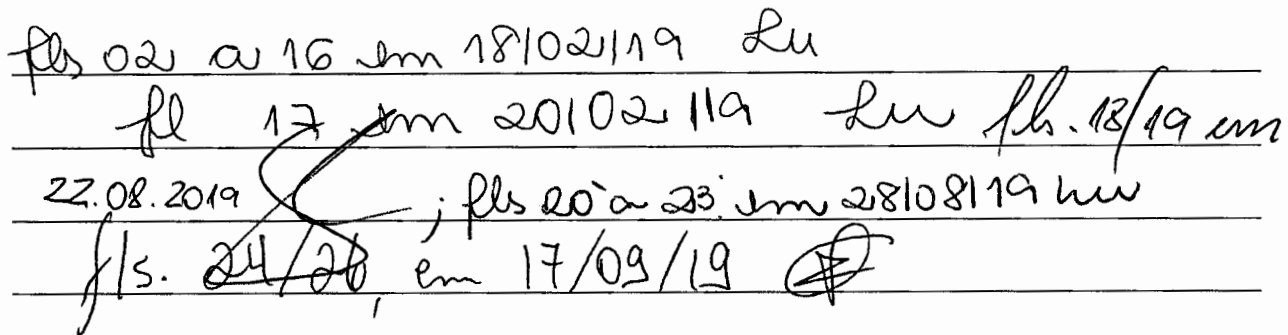 fls 02 a 16 em 18/02/19 Lu
fl 17 em 20/02/19 Lu fls. 18/19 em
22.08.2019 ; fls 20 a 23 em 28/08/19 Lu
fls. 24/26, em 17/09/19